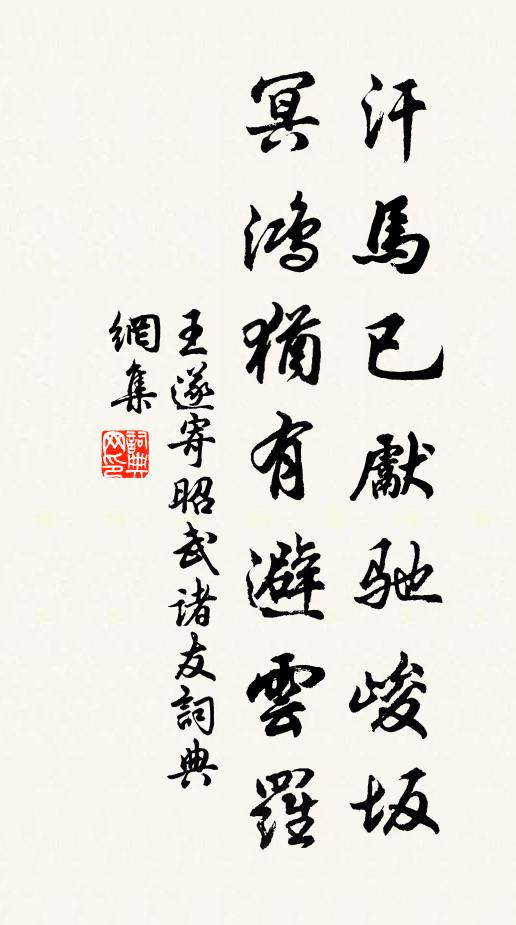 汗馬已獻馳峻坂
冥鴻猶有避雲羅
王遂寄昭武諸友詞典
網集
詞典
网印